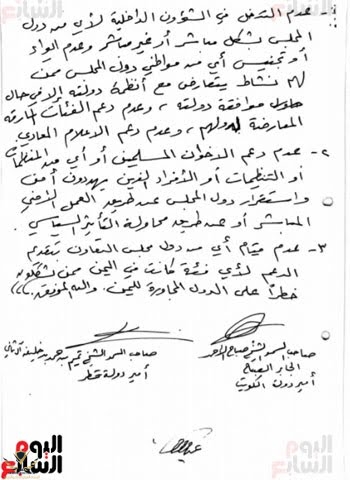 ١- عدم التدخل في الشؤون الداخلية لأي من دول
المجلس بشكل مباشر أو غير مباشر وعدم إيواء
أو تجنيس أي من مواطني دول المجلس ممن
لهم نشاط يتعارض مع أنظمة دولته إلا في حال
موافقة دولته، وعدم دعم الفئات المارقة
المعارضة لدولهم، وعدم دعم الاعلام المعادي.
٢- عدم دعم الاخوان المسلمين أو أي من المنظمات
أو التنظيمات أو الأفراد الذين يهددون أمن
واستقرار دول المجلس عن طريق العمل الأمني
المباشر أو عن طريق محاولة التأثير السياسي.
٣- عدم قيام أي من دول مجلس التعاون بتقديم
الدعم لأي فئة كانت في اليمن ممن يشكلون
خطراً على الدول المجاورة لليمن. والله الموفق،،،
صاحب السمو الشيخ صباح الأحمد
الجابر الصباح
أمير دولة الكويت
صاحب السمو الشيخ تميم بن حمد بن خليفة آل ثاني
أمير دولة قطر
اليوم السابع
اليوم السابع
اليوم السابع